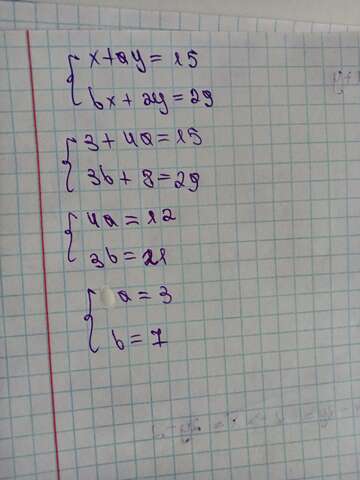 x+ay=15
bx+2y=29
3+4a=15
3b+8=29
4a=12
3b=21
a=3
b=7